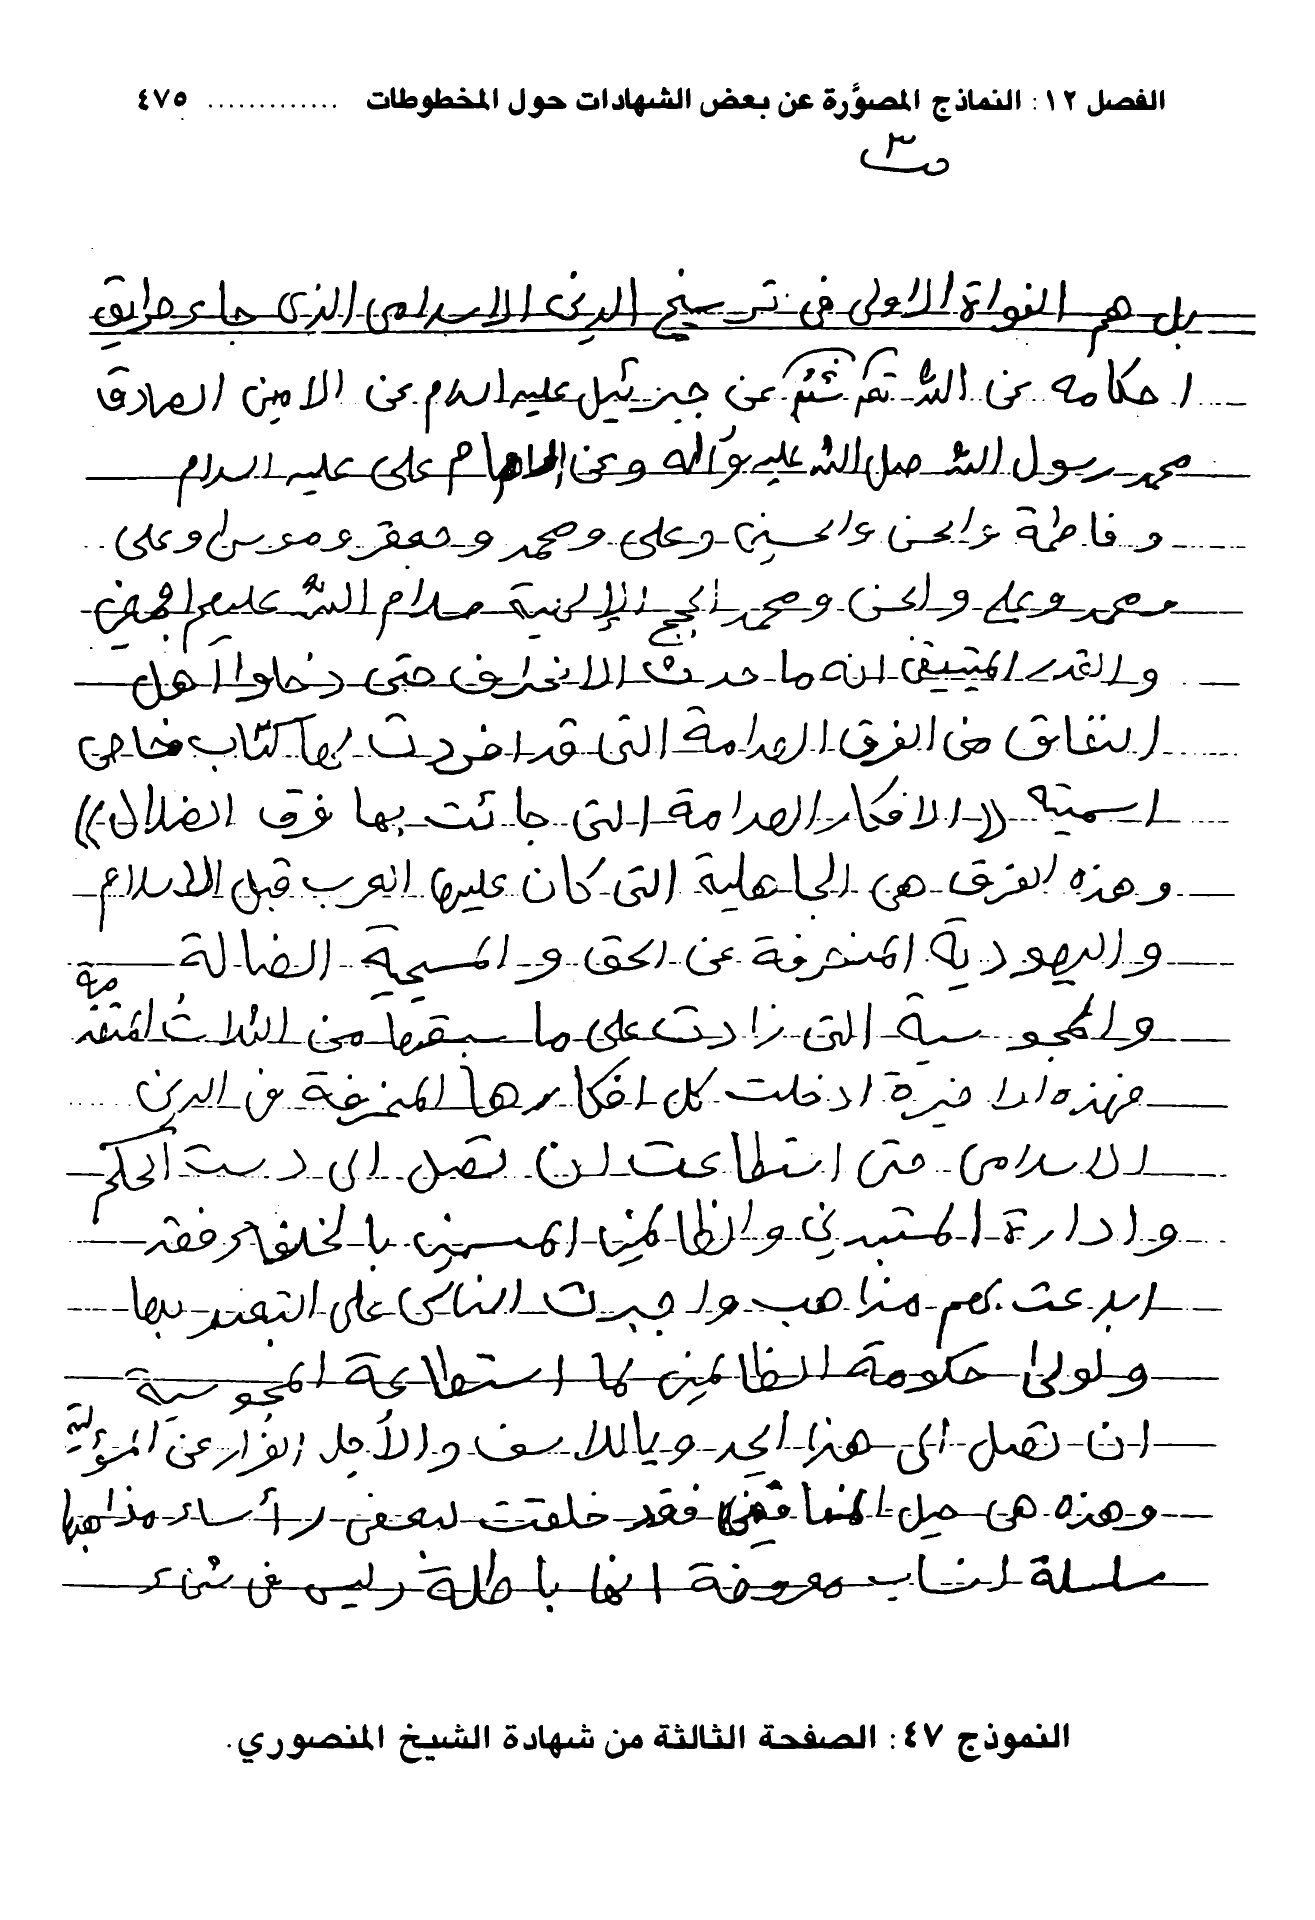 الفصل ١٢: النماذج المصوَّرة عن بعض الشهادات حول المخطوطات ............. ٤٧٥
ص ٣
بل هم النواة الاولى في ترسيخ الدين الاسلامي الذي جاء طريق
احكامه عن الله عن جبرئيل عليه السلام عن الامين الصادق
محمد رسول الله صل الله عليه وآله وعن الامام علي عليه السلام
وفاطمة والحسن والحسين وعلي ومحمد وجعفر وموسى وعلي
ومحمد وعلي والحسن ومحمد الحجج الإلهية سلام الله عليهم اجمعين
والقدر المتيقن انه ما حدث الانحراف حتى دخلوا اهل
النفاق من الفرق الهدامة التي قد افردت بها كتاب خاص
اسميته ((الافكار الهدامة التي جائت بها فرق الضلال))
وهذه الفرق هي الجاهلية التي كان عليها العرب قبل الاسلام
واليهودية المنحرفة عن الحق والمسيحية الضالة
والمجوسية التي زادت على ما سبقها من الثلاث المتقدمة
فهذه الاخيرة ادخلت كل افكارها المنحرفة في الدين
الاسلامي حتى استطاعت ان تصل الى دست الحكم
وادارة المستبدين والظالمين المسمين بالخلفاء فقد
ابدعت لهم مذاهب واجبرت الناس على التعبد بها
ولولى حكومة الظالمين لما استطاعة المجوسية
ان تصل الى هذا الحد ويا للاسف والأجل الفرار عن المسؤلية
وهذه هي حيل المنافقين فقد خلقت لبعض رأساء مذاهبها
سلسلة انساب معروفة انها باطلة وليس في شيء
النموذج ٤٧: الصفحة الثالثة من شهادة الشيخ المنصوري.